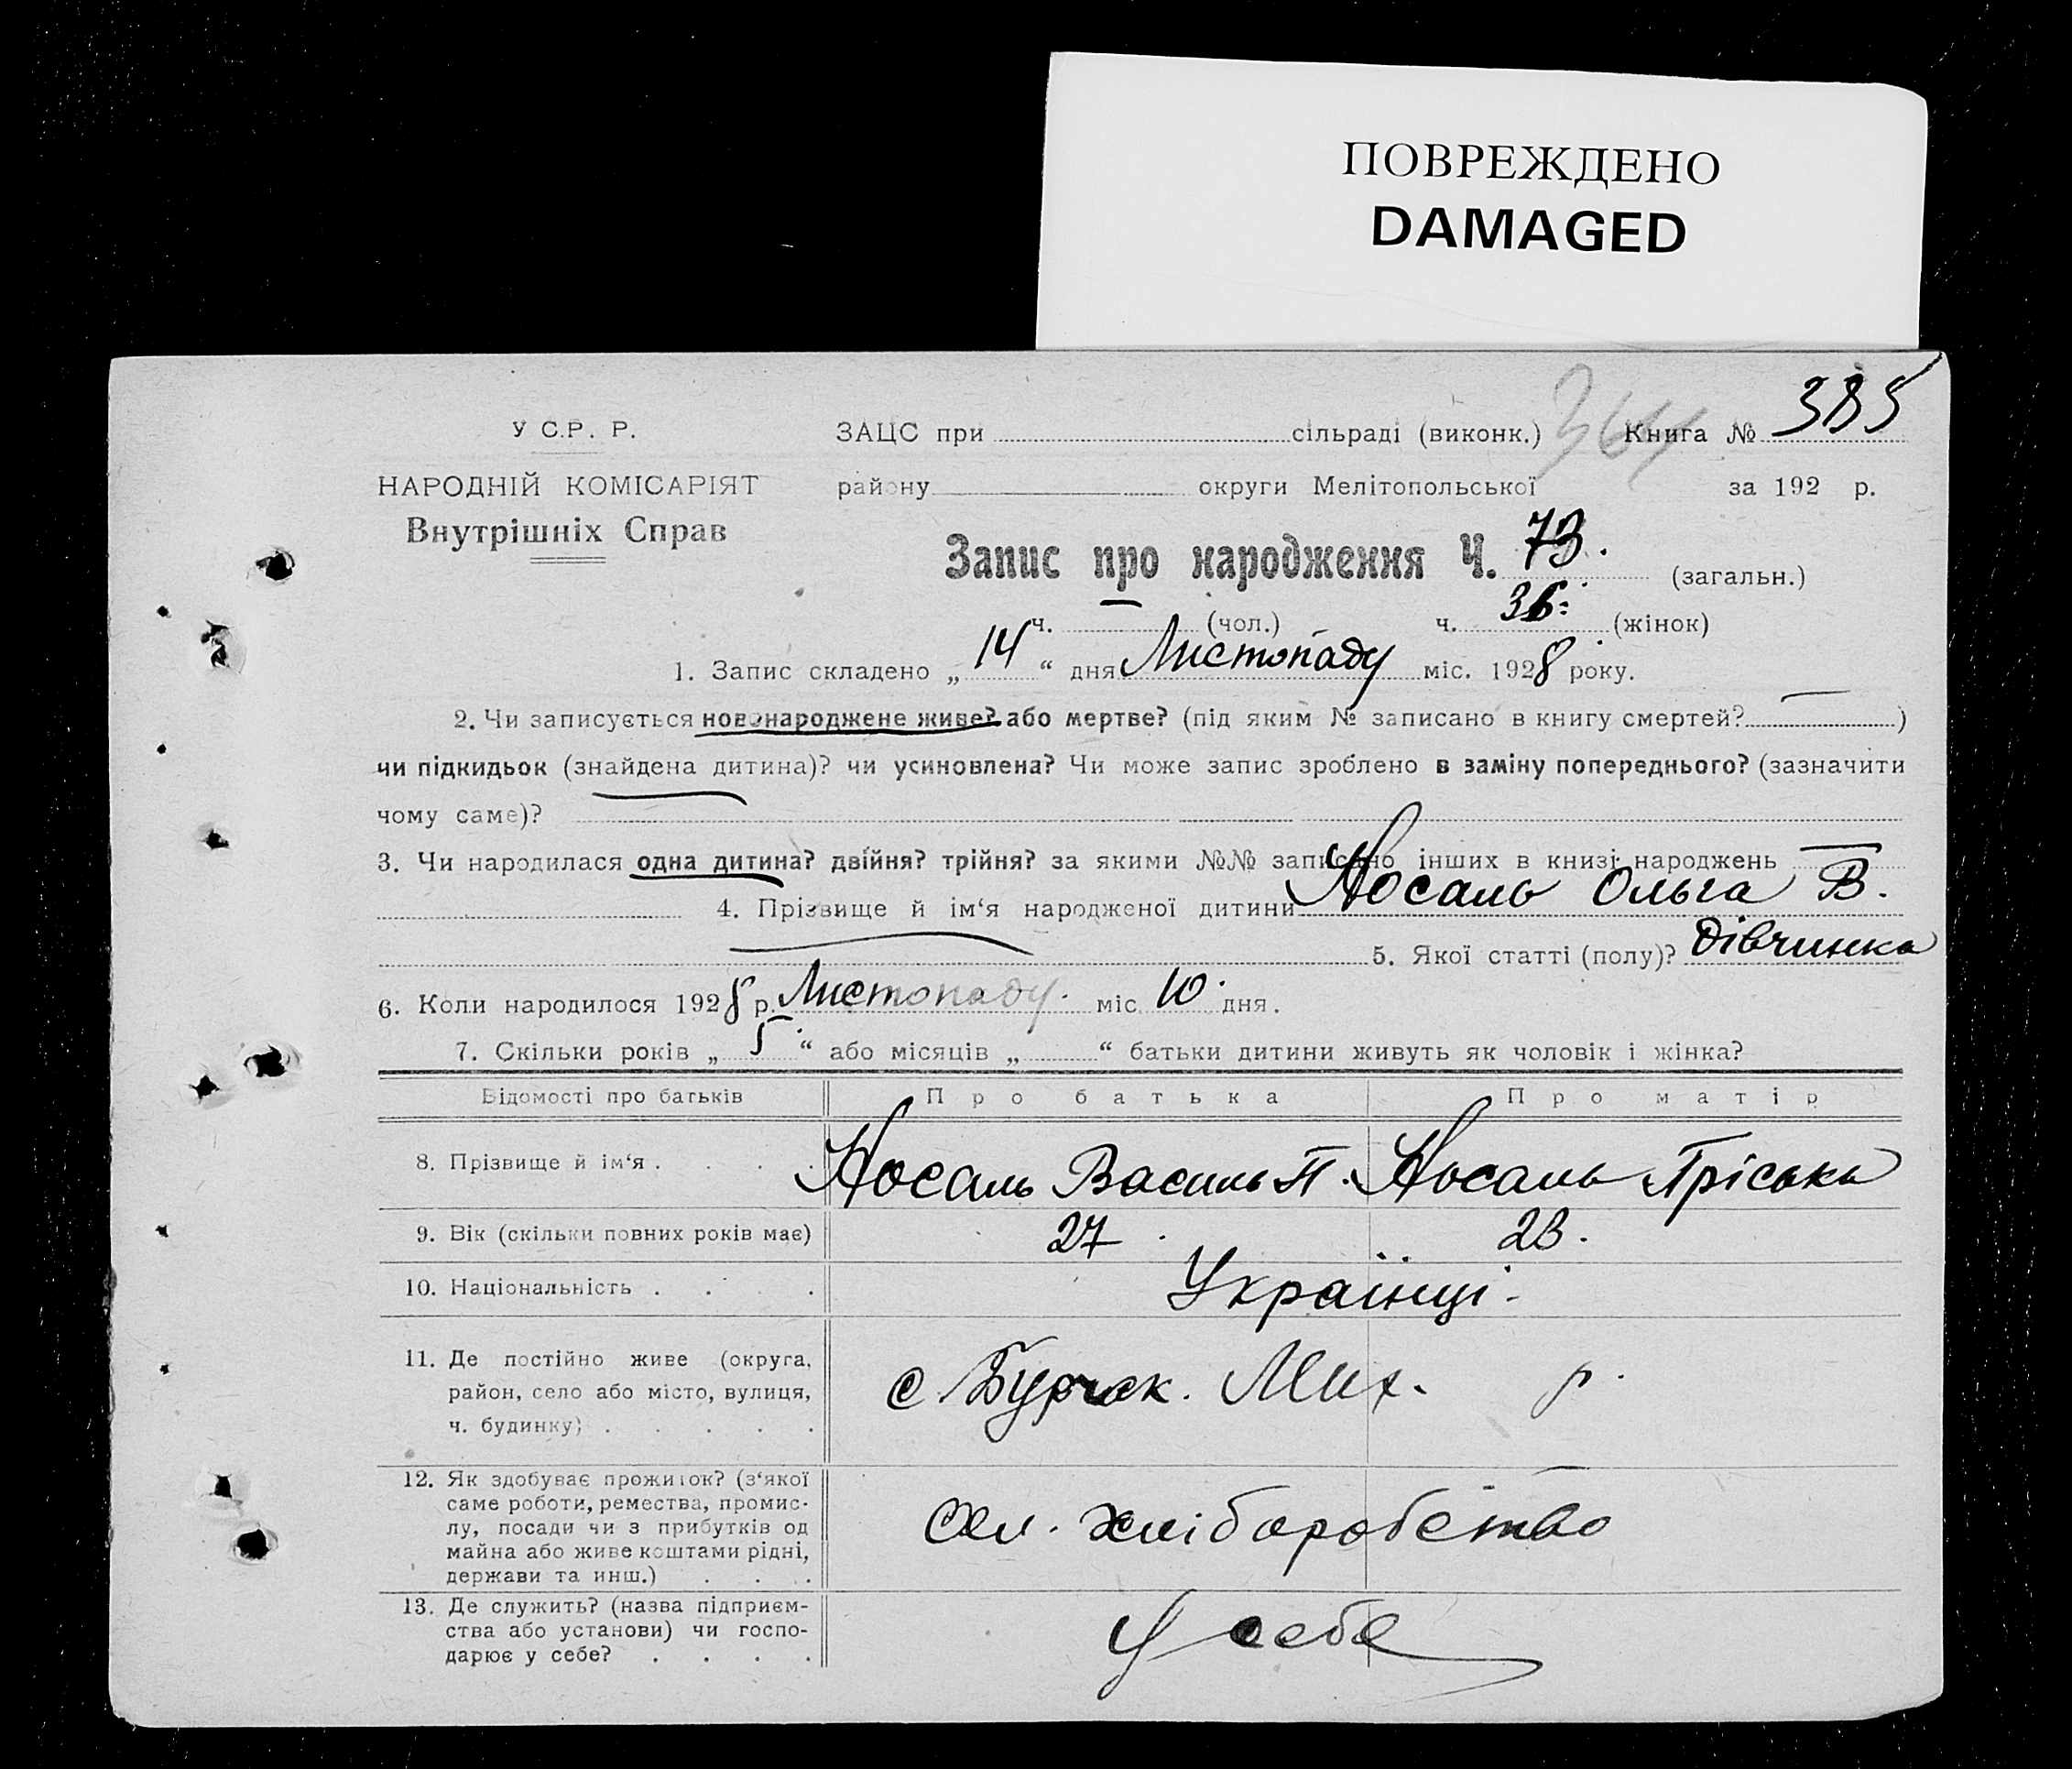 ПОВРЕЖДЕНО
DAMAGED
У С.Р. Р. ЗАЦС при сільраді (виконк.) Книга № 385
НАРОДНІЙ КОМІСАРІЯТ району округи Мелітопольської за 192 р.
Внутрішніх Справ
Запис про народження Ч. 73. (загальн.)
ч. — (чол.) ч. 36: (жінок)
1. Запис складено „ 14 “ дня Листопаду міс. 1928 року.
2. Чи записується новонароджене живе? або мертве? (під яким № записано в книгу смертей? — )
чи підкидьок (знайдена дитина)? чи усиновлена? Чи може запис зроблено в заміну попереднього? (зазначити
чому саме)?
3. Чи народилася одна дитина? двійня? трійня? за якими №№ записано інших в книзі народжень —
4. Прізвище й ім‘я народженої дитини Носаль Ольга В.
5. Якої статті (полу)? Дівчинка
6. Коли народилося 1928 р. Листопаду. міс 10. дня.
7. Скільки років „ 5 “ або місяців „ “ батьки дитини живуть як чоловік і жінка?
Відомості про батьків Про батька Про матір
8. Прізвище й ім‘я . . . . Носаль Василь П. Носаль
9. Вік (скільки повних років має) 27. 23.
10. Національність . . . . Українці.
11. Де постійно живе (округа,
район, село або місто, вулиця,
ч. будинку) . . . . .
с Бурчак. Мих. р.
12. Як здобуває прожиток? (з‘якої
саме роботи, ремества, промис-
лу, посади чи з прибутків од
майна або живе коштами рідні,
держави та инш.) . . .
хліборобство
13. Де служить? (назва підприєм-
ства або установи) чи госпо-
дарює у себе? . . . .
У себе